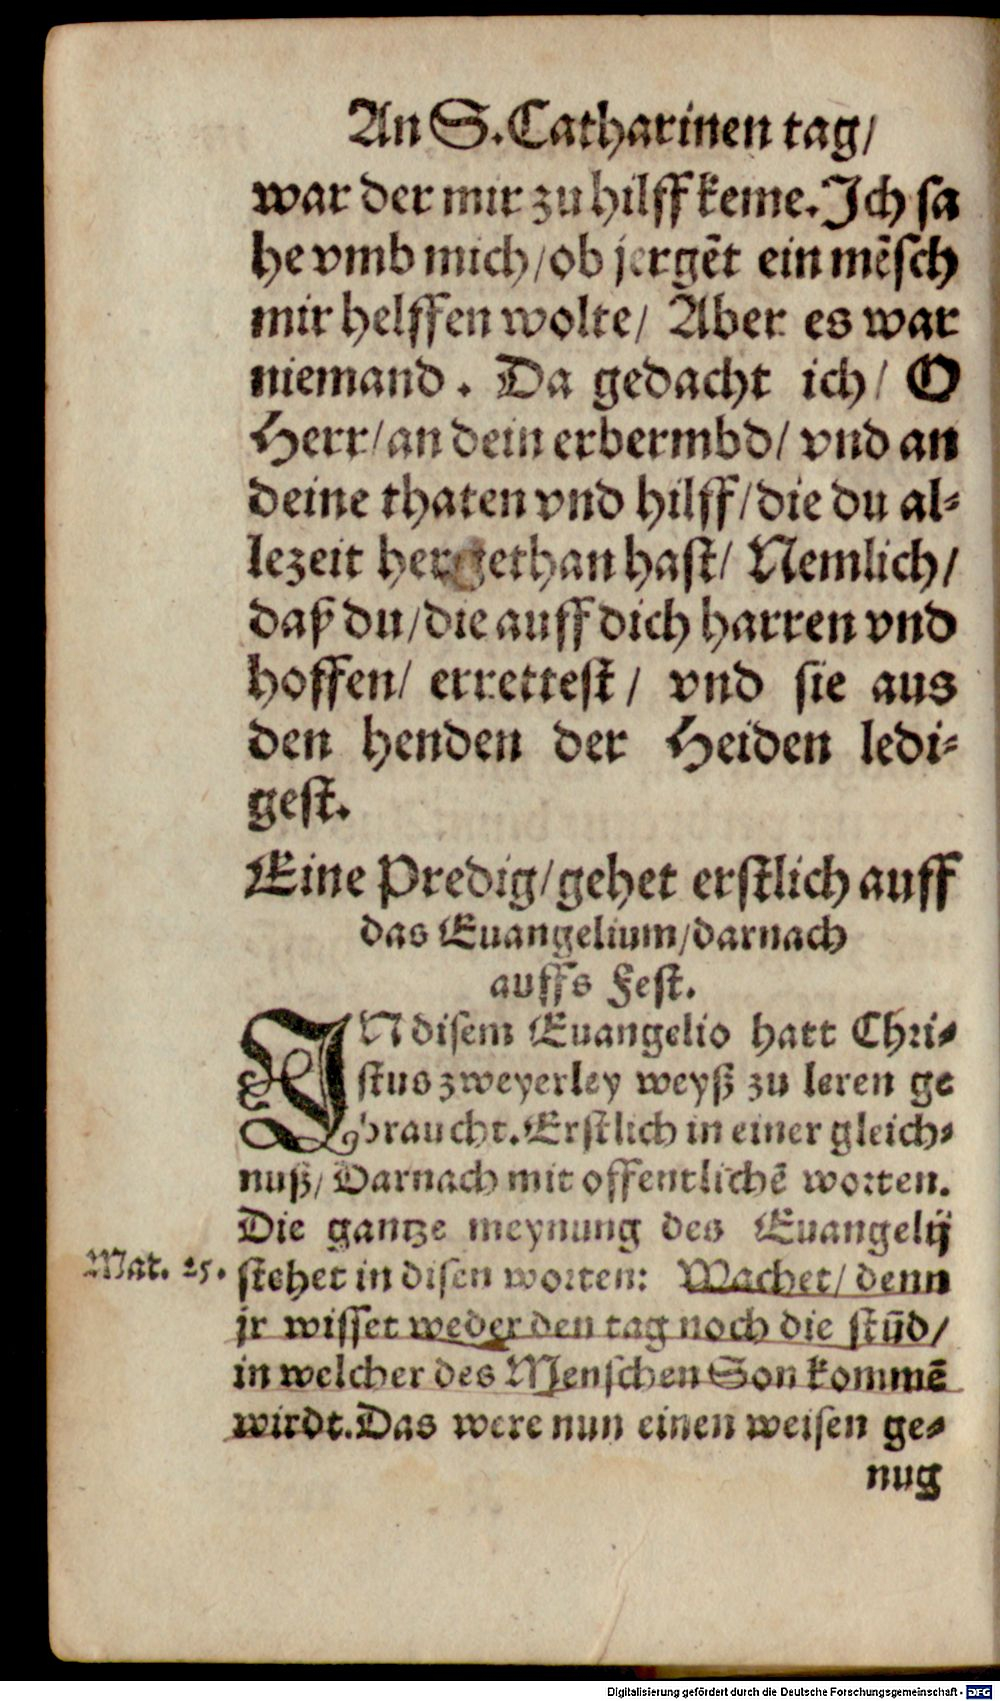 An S. Catharinen tag/
war der mir zu hilff keme. Ich sa
he vmb mich/ob jergẽt ein mẽsch
mir helffen wolte/ Aber es war
niemand. Da gedacht ich/ O
Herr/an dein erbermbd/ vnd an
deine thaten vnd hilff/die du al-
lezeit hergethan hast/ Nemlich/
daß du/die auff dich harren vnd
hoffen/ errettest/ vnd sie aus
den henden der Heiden ledi-
gest.
Eine Predig/gehet erstlich auff
das Euangelium/darnach
auffs Fest.
IN disem Euangelio hatt Chri-
stus zweyerley weyß zu leren ge
braucht. Erstlich in einer gleich-
nuß/ Darnach mit offentlichẽ worten.
Die gantze meynung des Euangelij
Mat. 25. stehet in disen worten: Wachet/ denn
jr wisset weder den tag noch die stũd/
in welcher des Menschen Son kommẽ
wirdt. Das were nun einen weisen ge-
nug
Digitalisierung gefördert durch die Deutsche Forschungsgemeinschaft - DFG